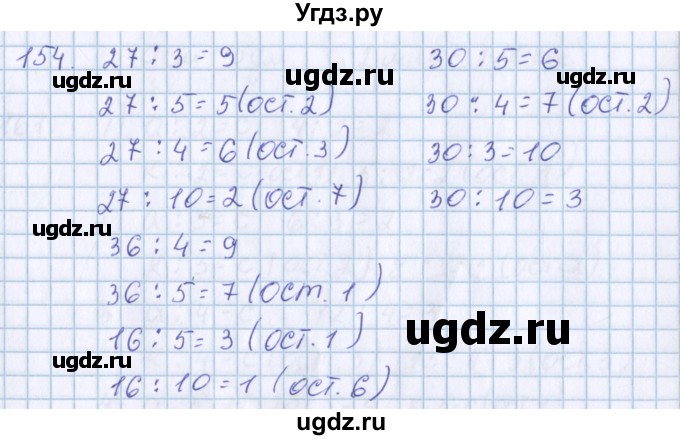 Угдз.ру
154. 27 : 3 = 9 30 : 5 = 6
ugdz.ru ugdz.ru
27 : 5 = 5 (ост. 2) 30 : 4 = 7 (ост. 2)
27 : 4 = 6 (ост. 3) 30 : 3 = 10
ugdz.ru ugdz.ru
27 : 10 = 2 (ост. 7) 30 : 10 = 3
ugdz.ru
36 : 4 = 9
36 : 5 = 7 (ост. 1)
16 : 5 = 3 (ост. 1)
ugdz.ru ugdz.ru
16 : 10 = 1 (ост. 6)
ugdz.ru